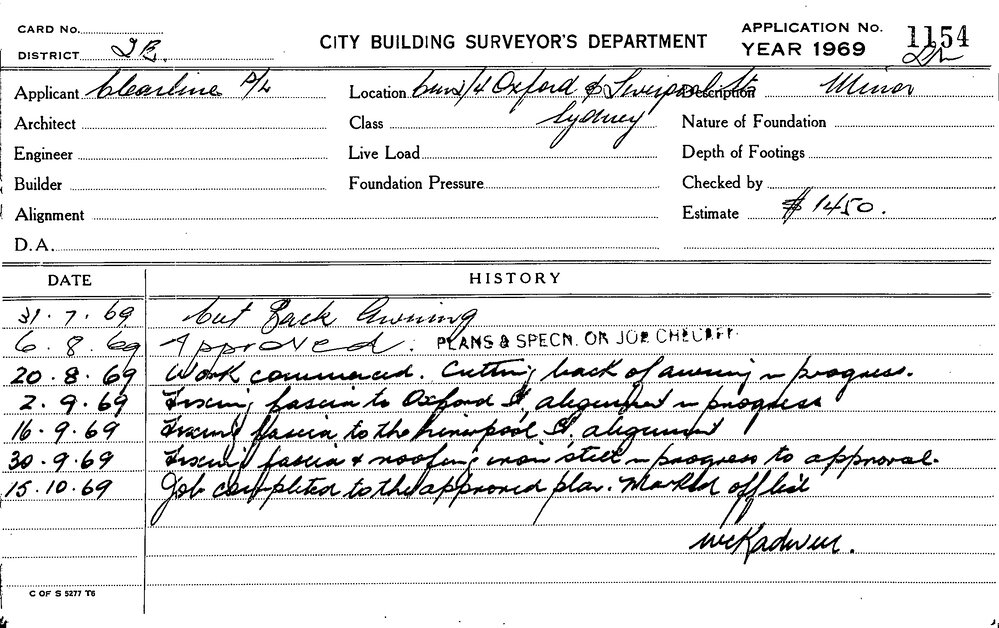 CARD No.
DISTRICT
CITY BUILDING SURVEYOR'S DEPARTMENT
APPLICATION No. 1154
YEAR 1969
Applicant Clearline P/L Location Oxford & Liverpool Sts Description Minor
Architect Class Sydney Nature of Foundation
Engineer Live Load Depth of Footings
Builder Foundation Pressure Checked by
Alignment Estimate $ 1450.
D.A.
DATE HISTORY
31.7.69 Cut Back Awning
6.8.69 Approved. PLANS & SPECN. ON JOB CHECKED.
20.8.69 Work commenced. Cutting back of awning in progress.
2.9.69 Fixing fascia to Oxford St alignment in progress
16.9.69 Fixing fascia to the Liverpool St, alignment
30.9.69 Fixing fascia & roofing iron still in progress to approval.
15.10.69 Job completed to the approved plan. Marked off list
C OF S 5277 T6